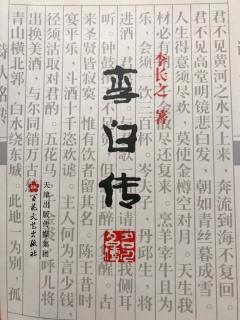 李白传
李长之 著
君不见黄河之水天上来 奔流到海不复回
君不见高堂明镜悲白发 朝如青丝暮成雪
人生得意须尽欢 莫使金樽空对月 天生我
材必有 散尽还复来 烹羊宰牛且为
乐 会须 饮三百杯 岑夫子 丹丘生 将
进酒 君 我侧耳
听 钟鼓 醒 古
来圣贤皆寂寞 惟有饮者留其名 陈王昔时
宴平乐 斗酒十千恣欢谑 主人何为言少钱
径须沽取对君酌 花马 呼儿将
出换美酒 与尔同销万
青山横北郭 白水绕东城 此地 为别 孤
天津出版传媒集团
百花文艺出版社